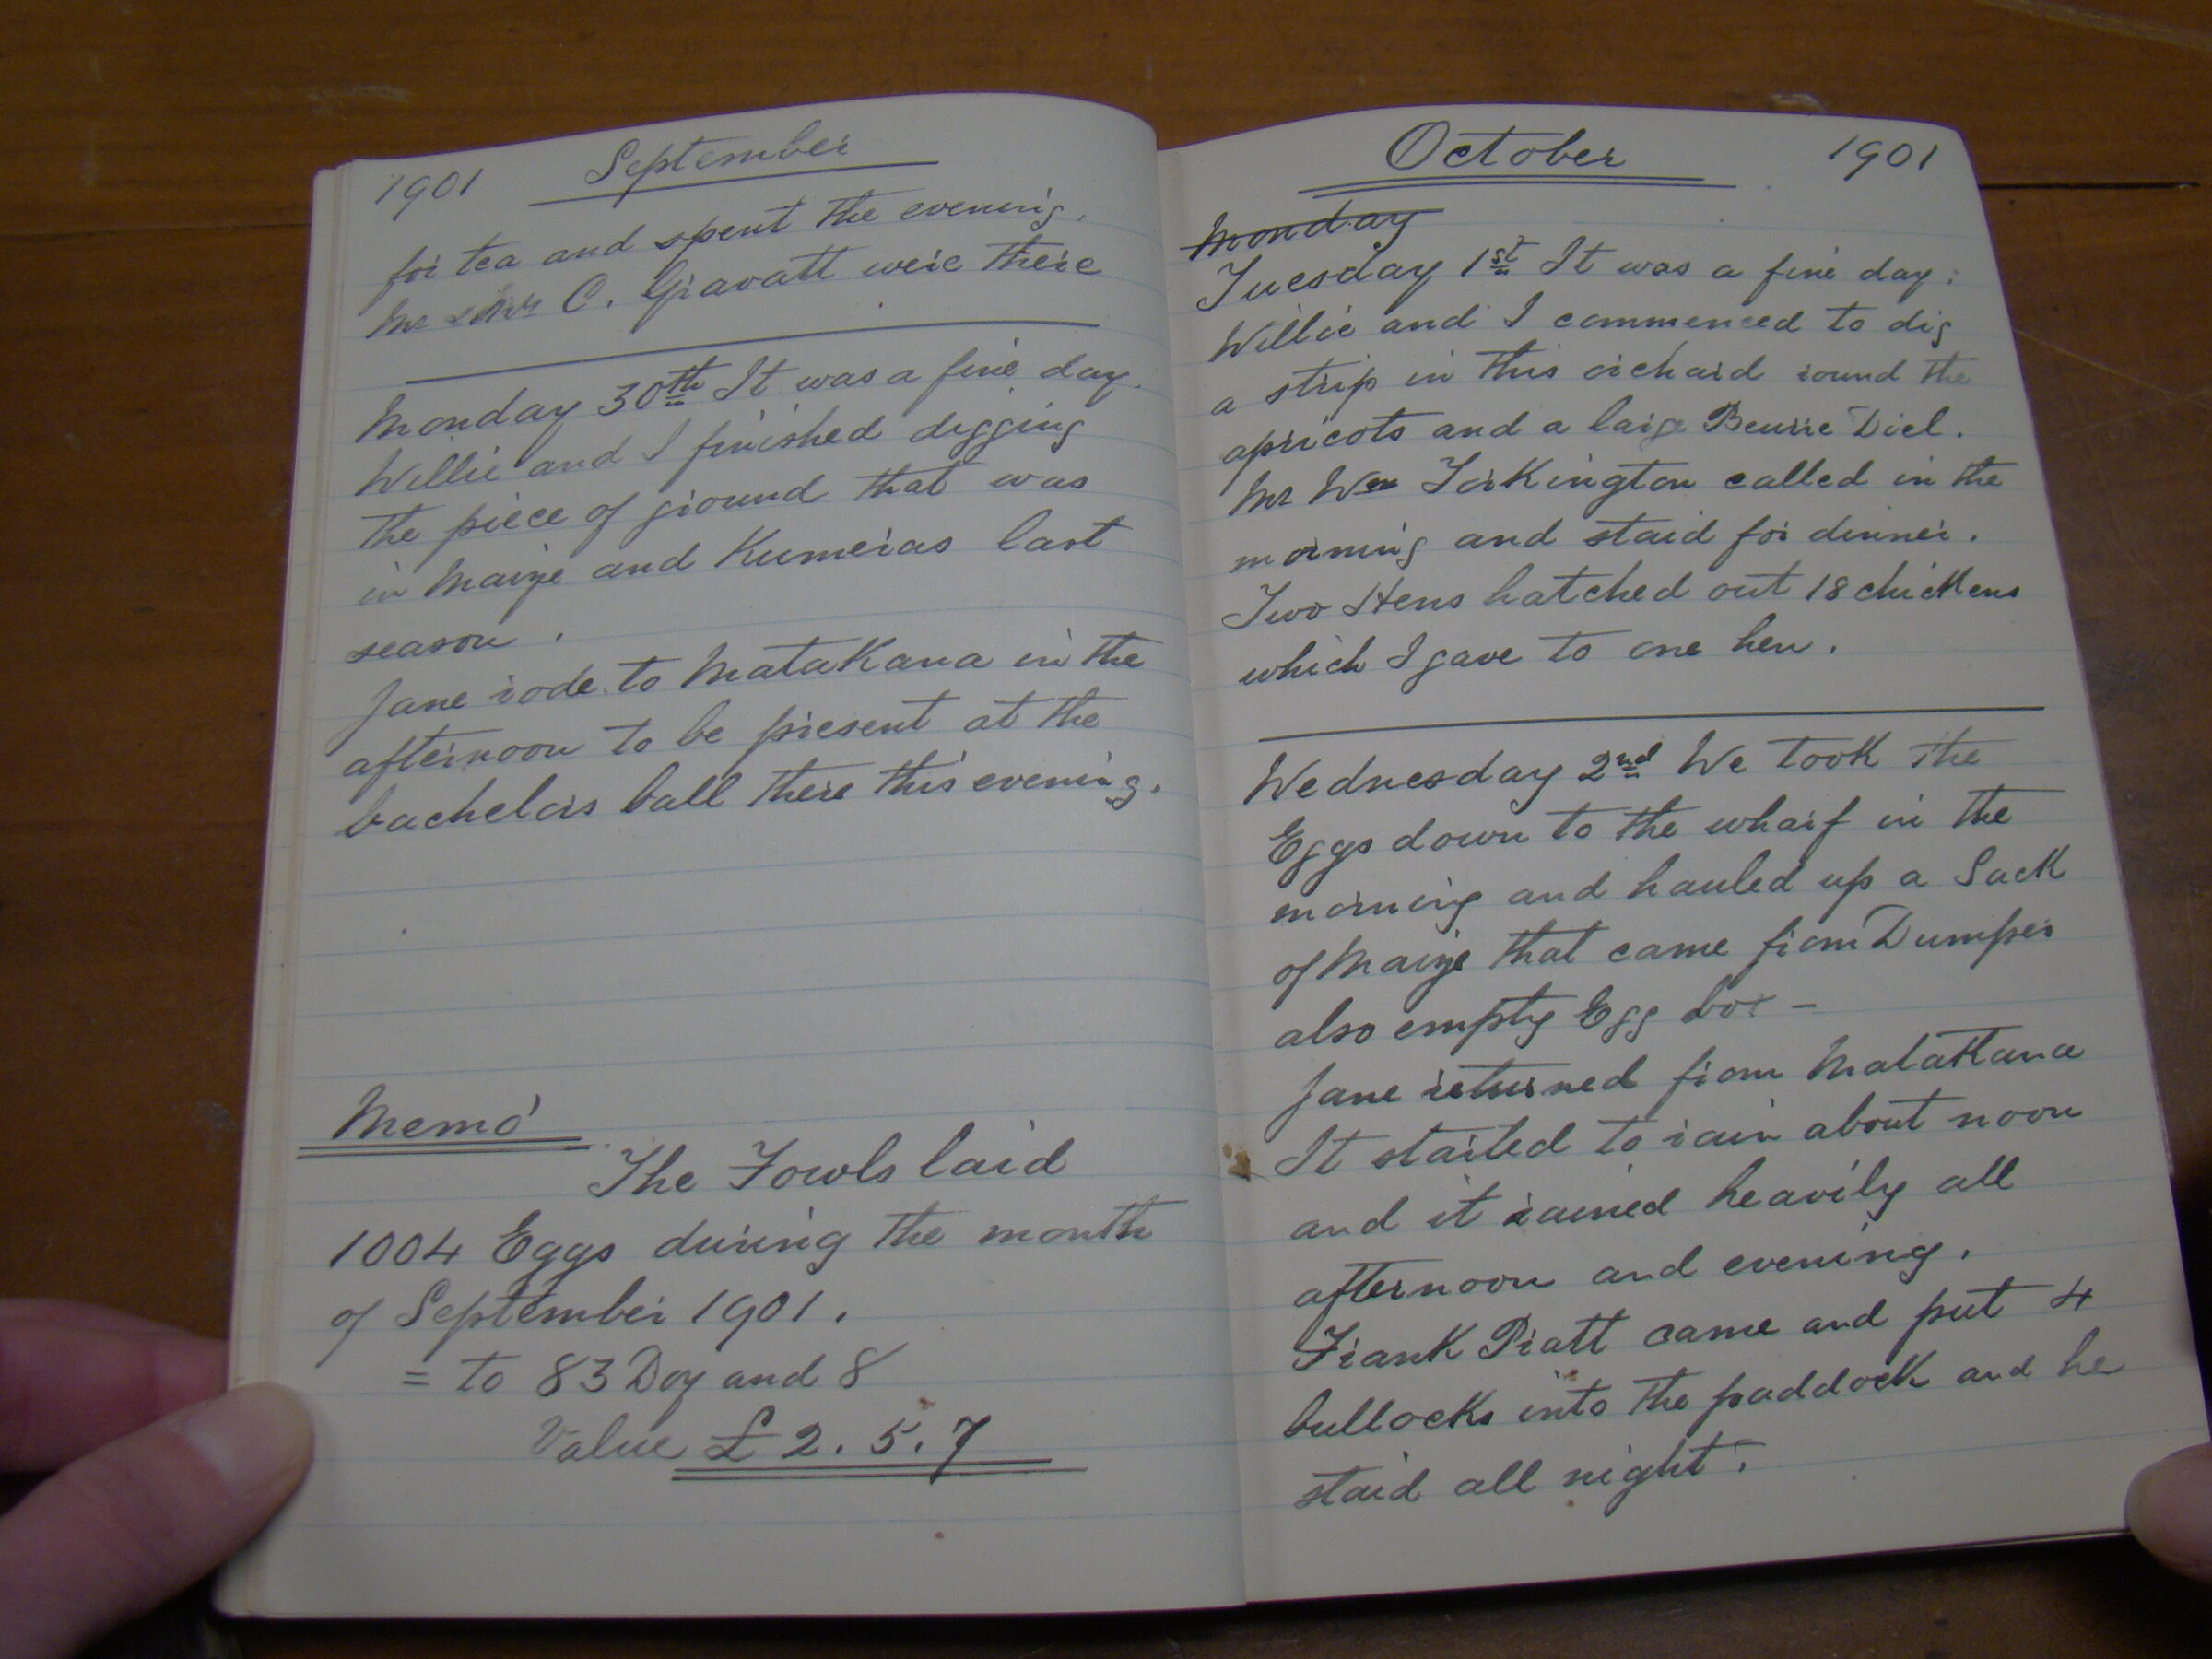 1901 September
for tea and spent the evening.
Mr & Mrs C. Gravatt were there
Monday 30th It was a fine day.
Willie and I finished digging
the piece of ground that was
in Maize and Kumeras last
season.
Jane rode to Matakana in the
afternoon to be present at the
bachelors ball there this evening.
Memo
The Fowls laid
1004 Eggs during the month
of September 1901.
= to 83 Doz and 8
Value £2.5.7
October 1901
Monday
Tuesday 1st It was a fine day.
Willie and I commenced to dig
a strip in this orchard round the
apricots and a large Beurre Diel.
Mr Wm Torkington called in the
morning and staid for dinner.
Two Hens hatched out 18 chickens
which I gave to one hen.
Wednesday 2nd We took the
Eggs down to the wharf in the
morning and hauled up a Sack
of Maize that came from Dumper
also empty Egg box –
Jane returned from Matakana
It started to rain about noon
and it rained heavily all
afternoon and evening.
Frank Pratt came and put 4
bullocks into the paddock and he
staid all night.